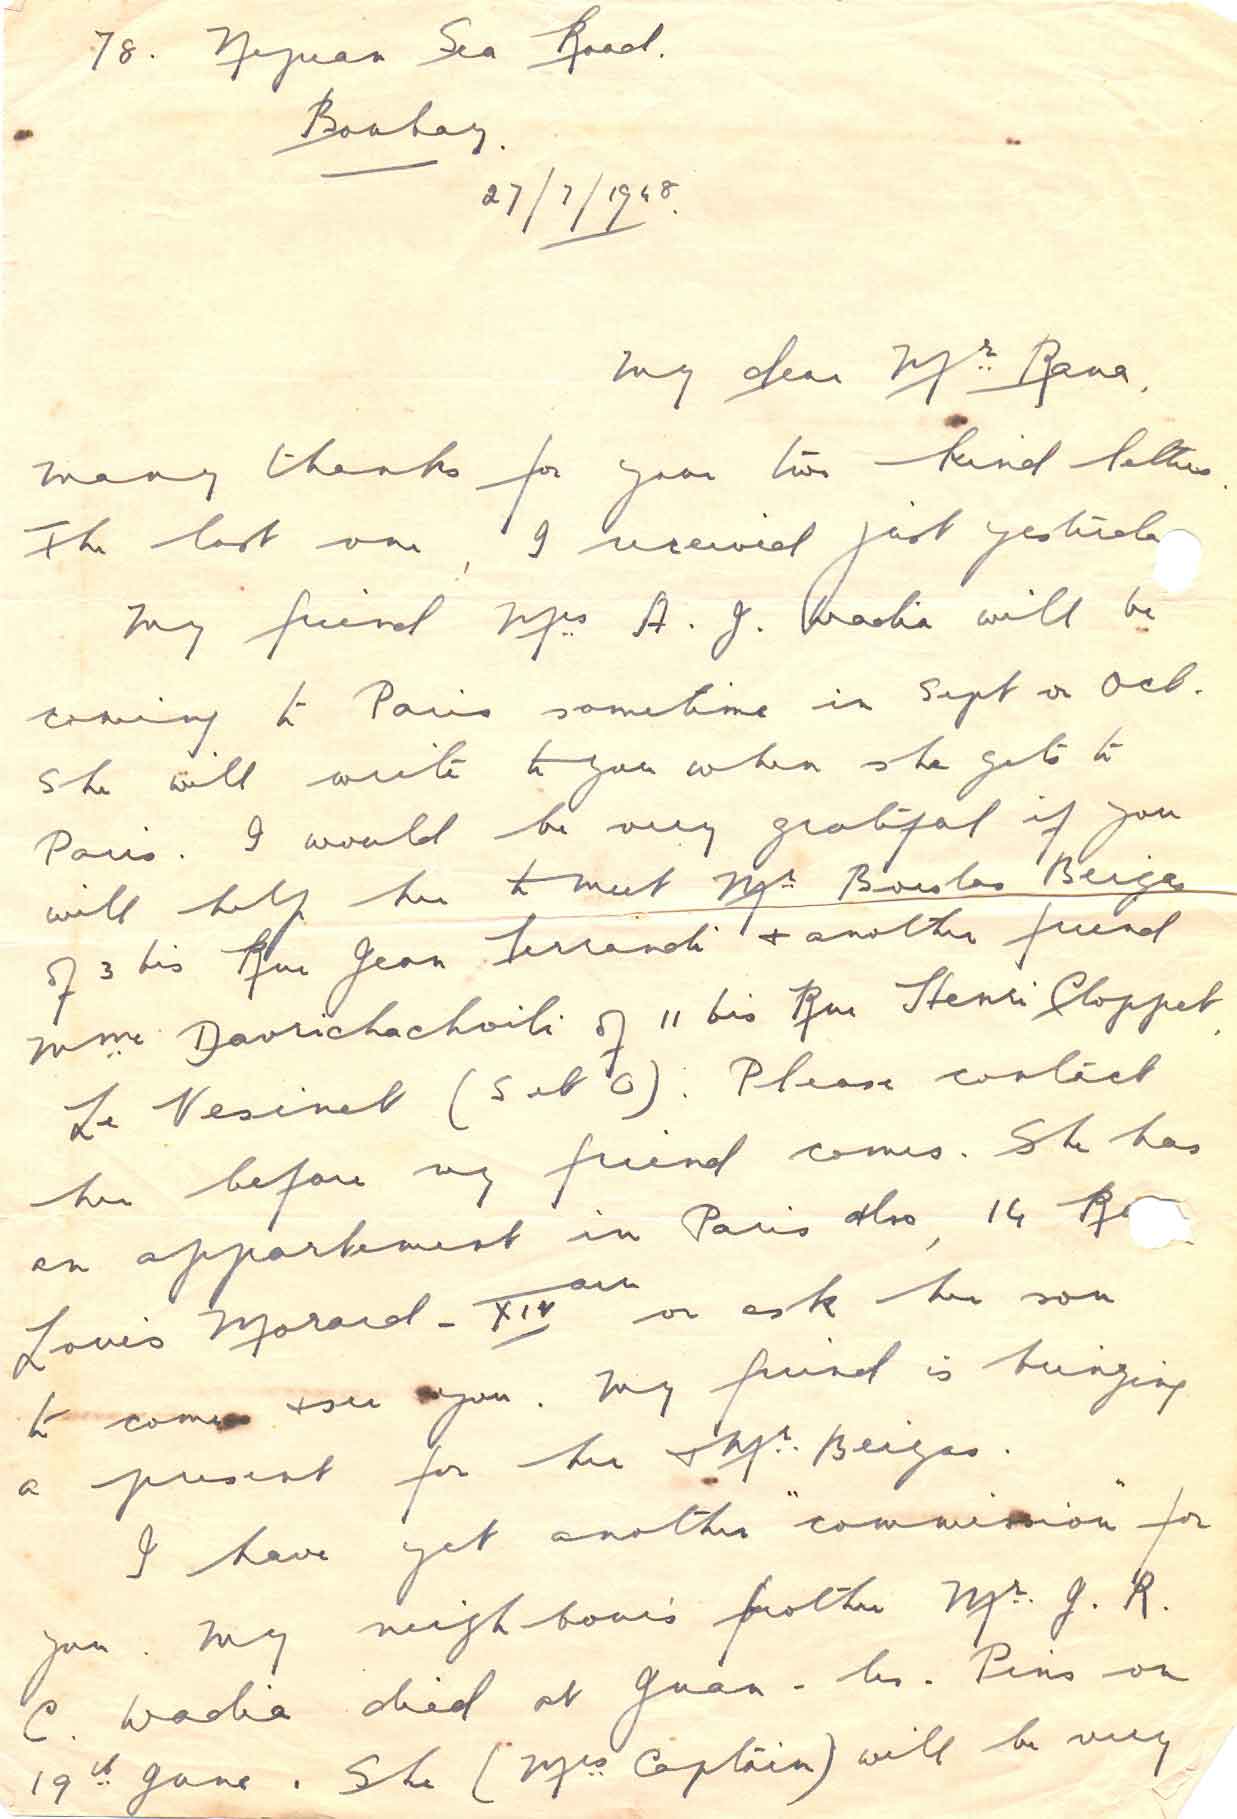 78. Nepean Sea Road.
Bombay.
27/7/1948.
My dear Mr Rana,
Many thanks for your two kind letters.
The last one, I received just yesterda
My friend Mrs A. J. Wadia will be
coming to Paris sometime in Sept or Oct.
She will write to you when she gets to
Paris. I would be very grateful if you
will help her to meet Mr Beigas
of 3 bis Rue Jean Ferrandi + another friend
Mme Davrichachvili of 11 bis Rue Henri Cloppet,
Le Vesinet (S et O). Please contact
her before my friend comes. She has
an appartement in Paris also, 14 R
Louis Morard - XIV or ask her son
to come + see you. My friend is bringing
a present for her + Mr. Beigas.
I have yet another "commission" for
you. My neighbour's brother Mr. J. R.
C. Wadia died at Juan-les-Pins on
19th June. She (Mrs Captain) will be very